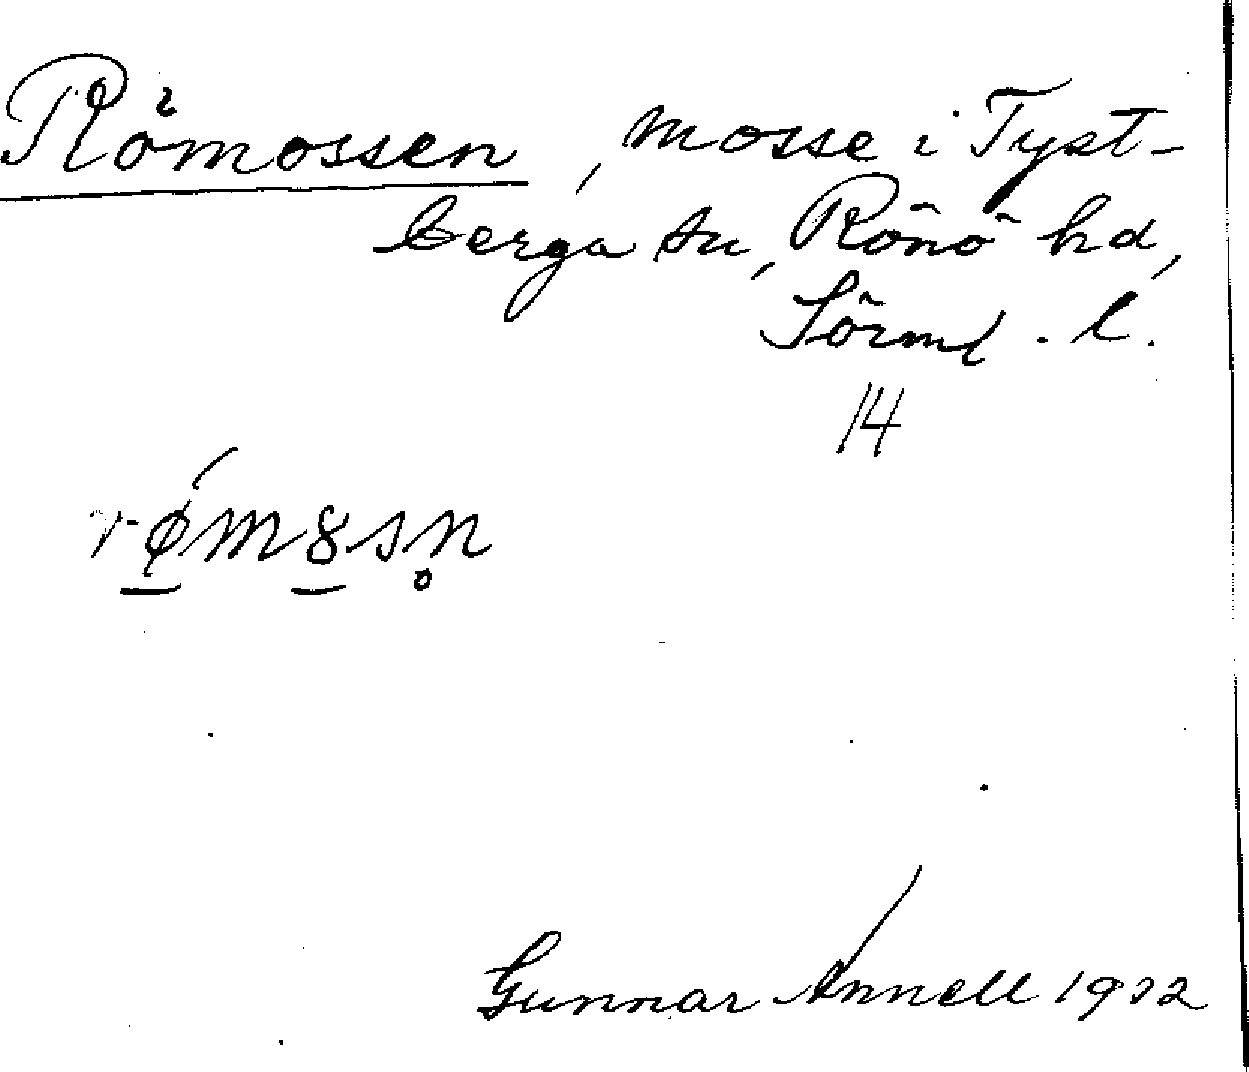 Römossen, mosse i Tyst-
berga sn, Rönö hd,
Sörml. l.
14
Gunnar Annell 1932